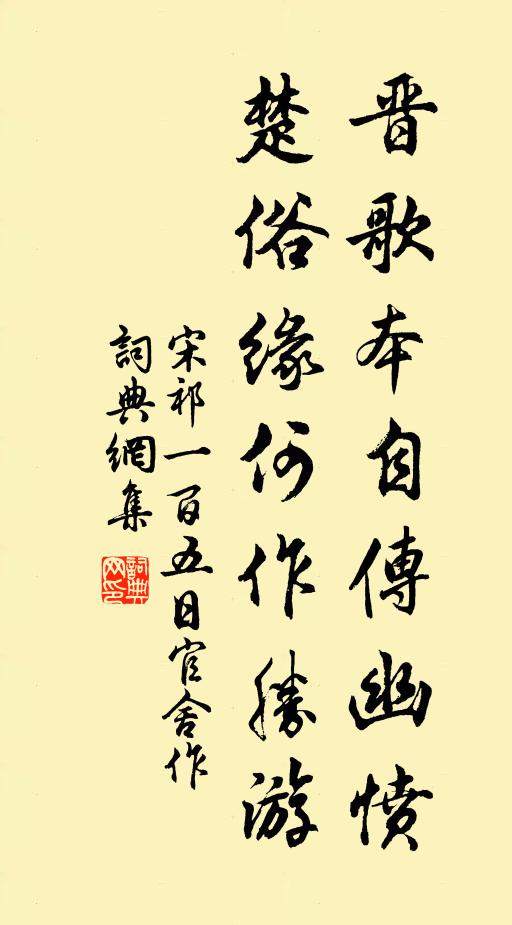 晋歌本自傳幽憤
楚俗緣何作勝游
宋祁一百五日官舍作
詞典網集
詞典網印